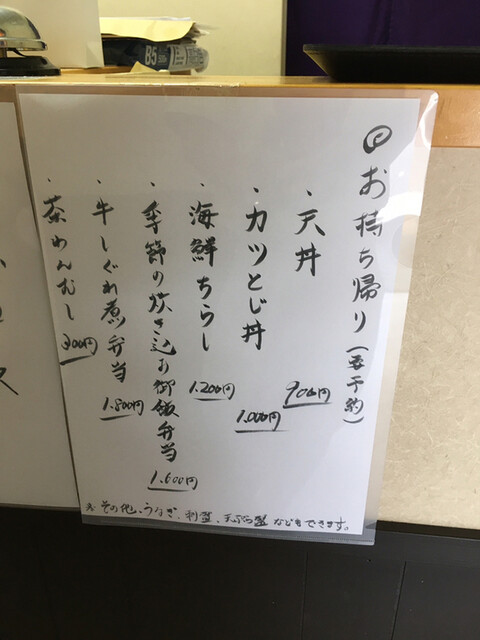 お持ち帰り(要予約)
・天丼 900円
・カツとじ丼 1.000円
・海鮮ちらし 1.200円
・季節の炊き込み御飯弁当 1.600円
・牛しぐれ煮弁当 1.800円
・茶わんむし 300円
※その他、うなぎ、刺盛、天ぷら盛などもできます。
B5